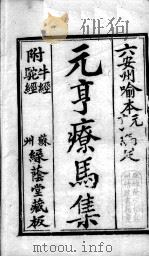 六安州喻本元亨
元亨療馬集
附牛經駝經
蘇州綠蔭堂藏板